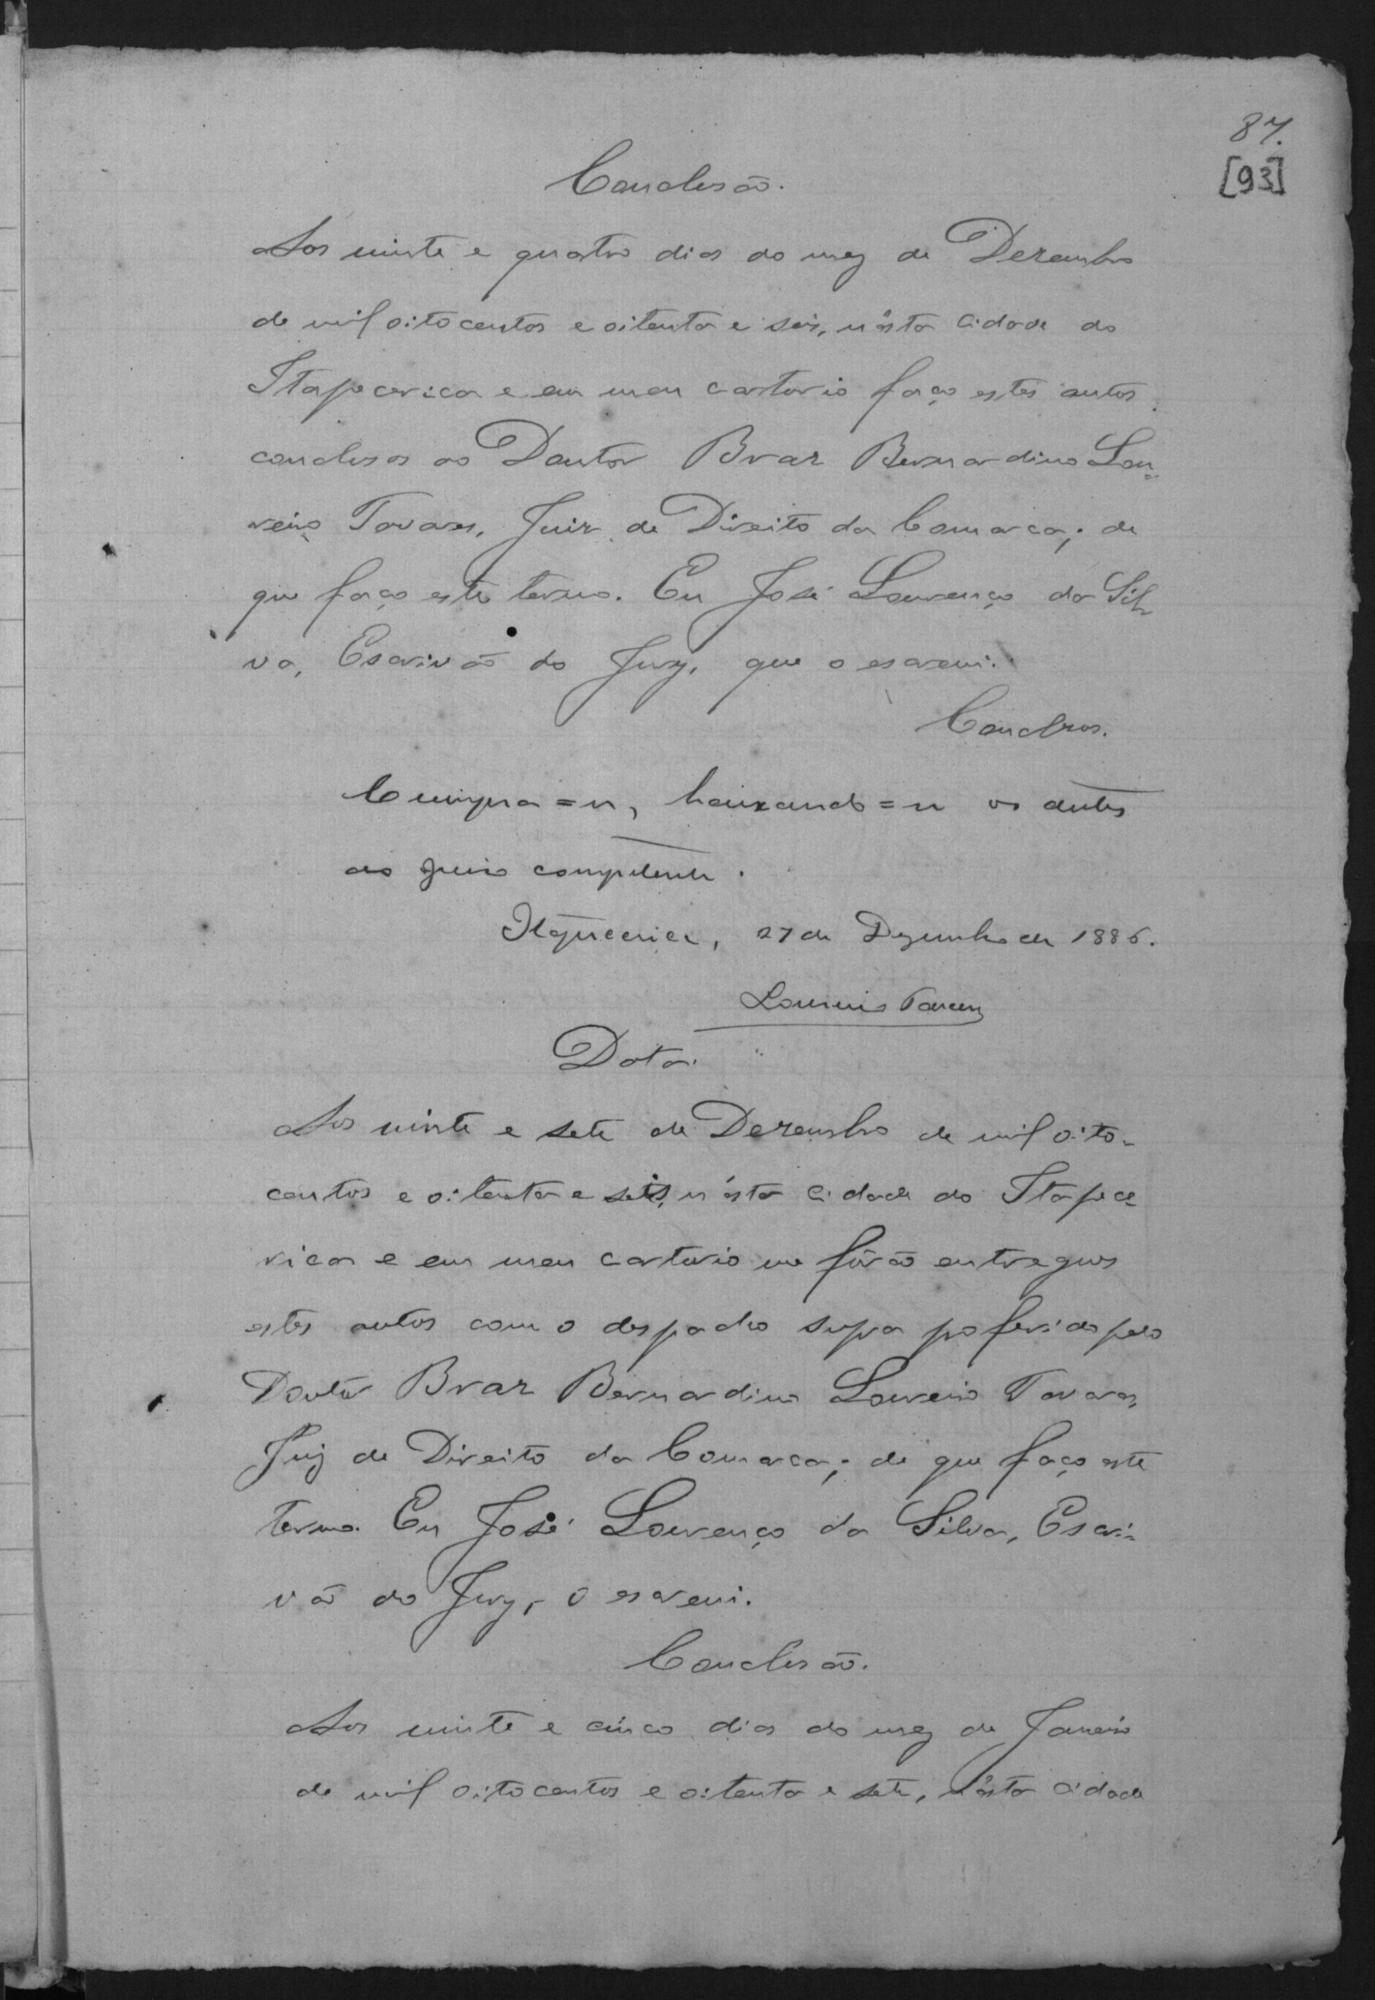 87.
[93]
Conclusão.
Aos vinte e quatro dias do mez de Dezembro
de mil oitocentos e oitenta e seis, n'ésta Cidade do
Itapecerica e em meu cartorio faço estes autos
conclusos ao Doutor Braz Bernardino Lou-
reiro Tavares, Juiz de Direito da Comarca; de
que faço este termo. Eu José Lourenço da Sil-
va, Escrivão do Jury, que o escrevi.
Conclusos.
Cumpra=se, baixando=se os autos
ao Juizo competente.
Itapecerica, 27 de Dezembro de 1886.
Loureiro Tavares
Data.
Aos vinte e sete de Dezembro de mil oito-
centos e oitenta e seis, n'ésta Cidade do Itapece
rica e em meu cartorio me fôrão entregues
estes autos com o despacho supra proferido pelo
Doutôr Braz Bernardino Loureiro Tavares,
Juiz de Direito da Comarca; de que faço este
termo. Eu José Lourenço da Silva, Escri-
vão do Jury, o escrevi.
Conclusão.
Aos vinte e cinco dias do mez de Janeiro
de mil oitocentos e oitenta e sete, n'ésta Cidade